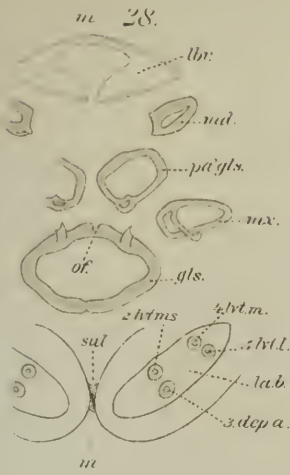 m 28.
lbr.
md.
pa'gls.
mx.
of.
gls.
2 lvt ms
4. lvt. m.
sul
1 lvt. l.
la. b.
3. dep a.
m